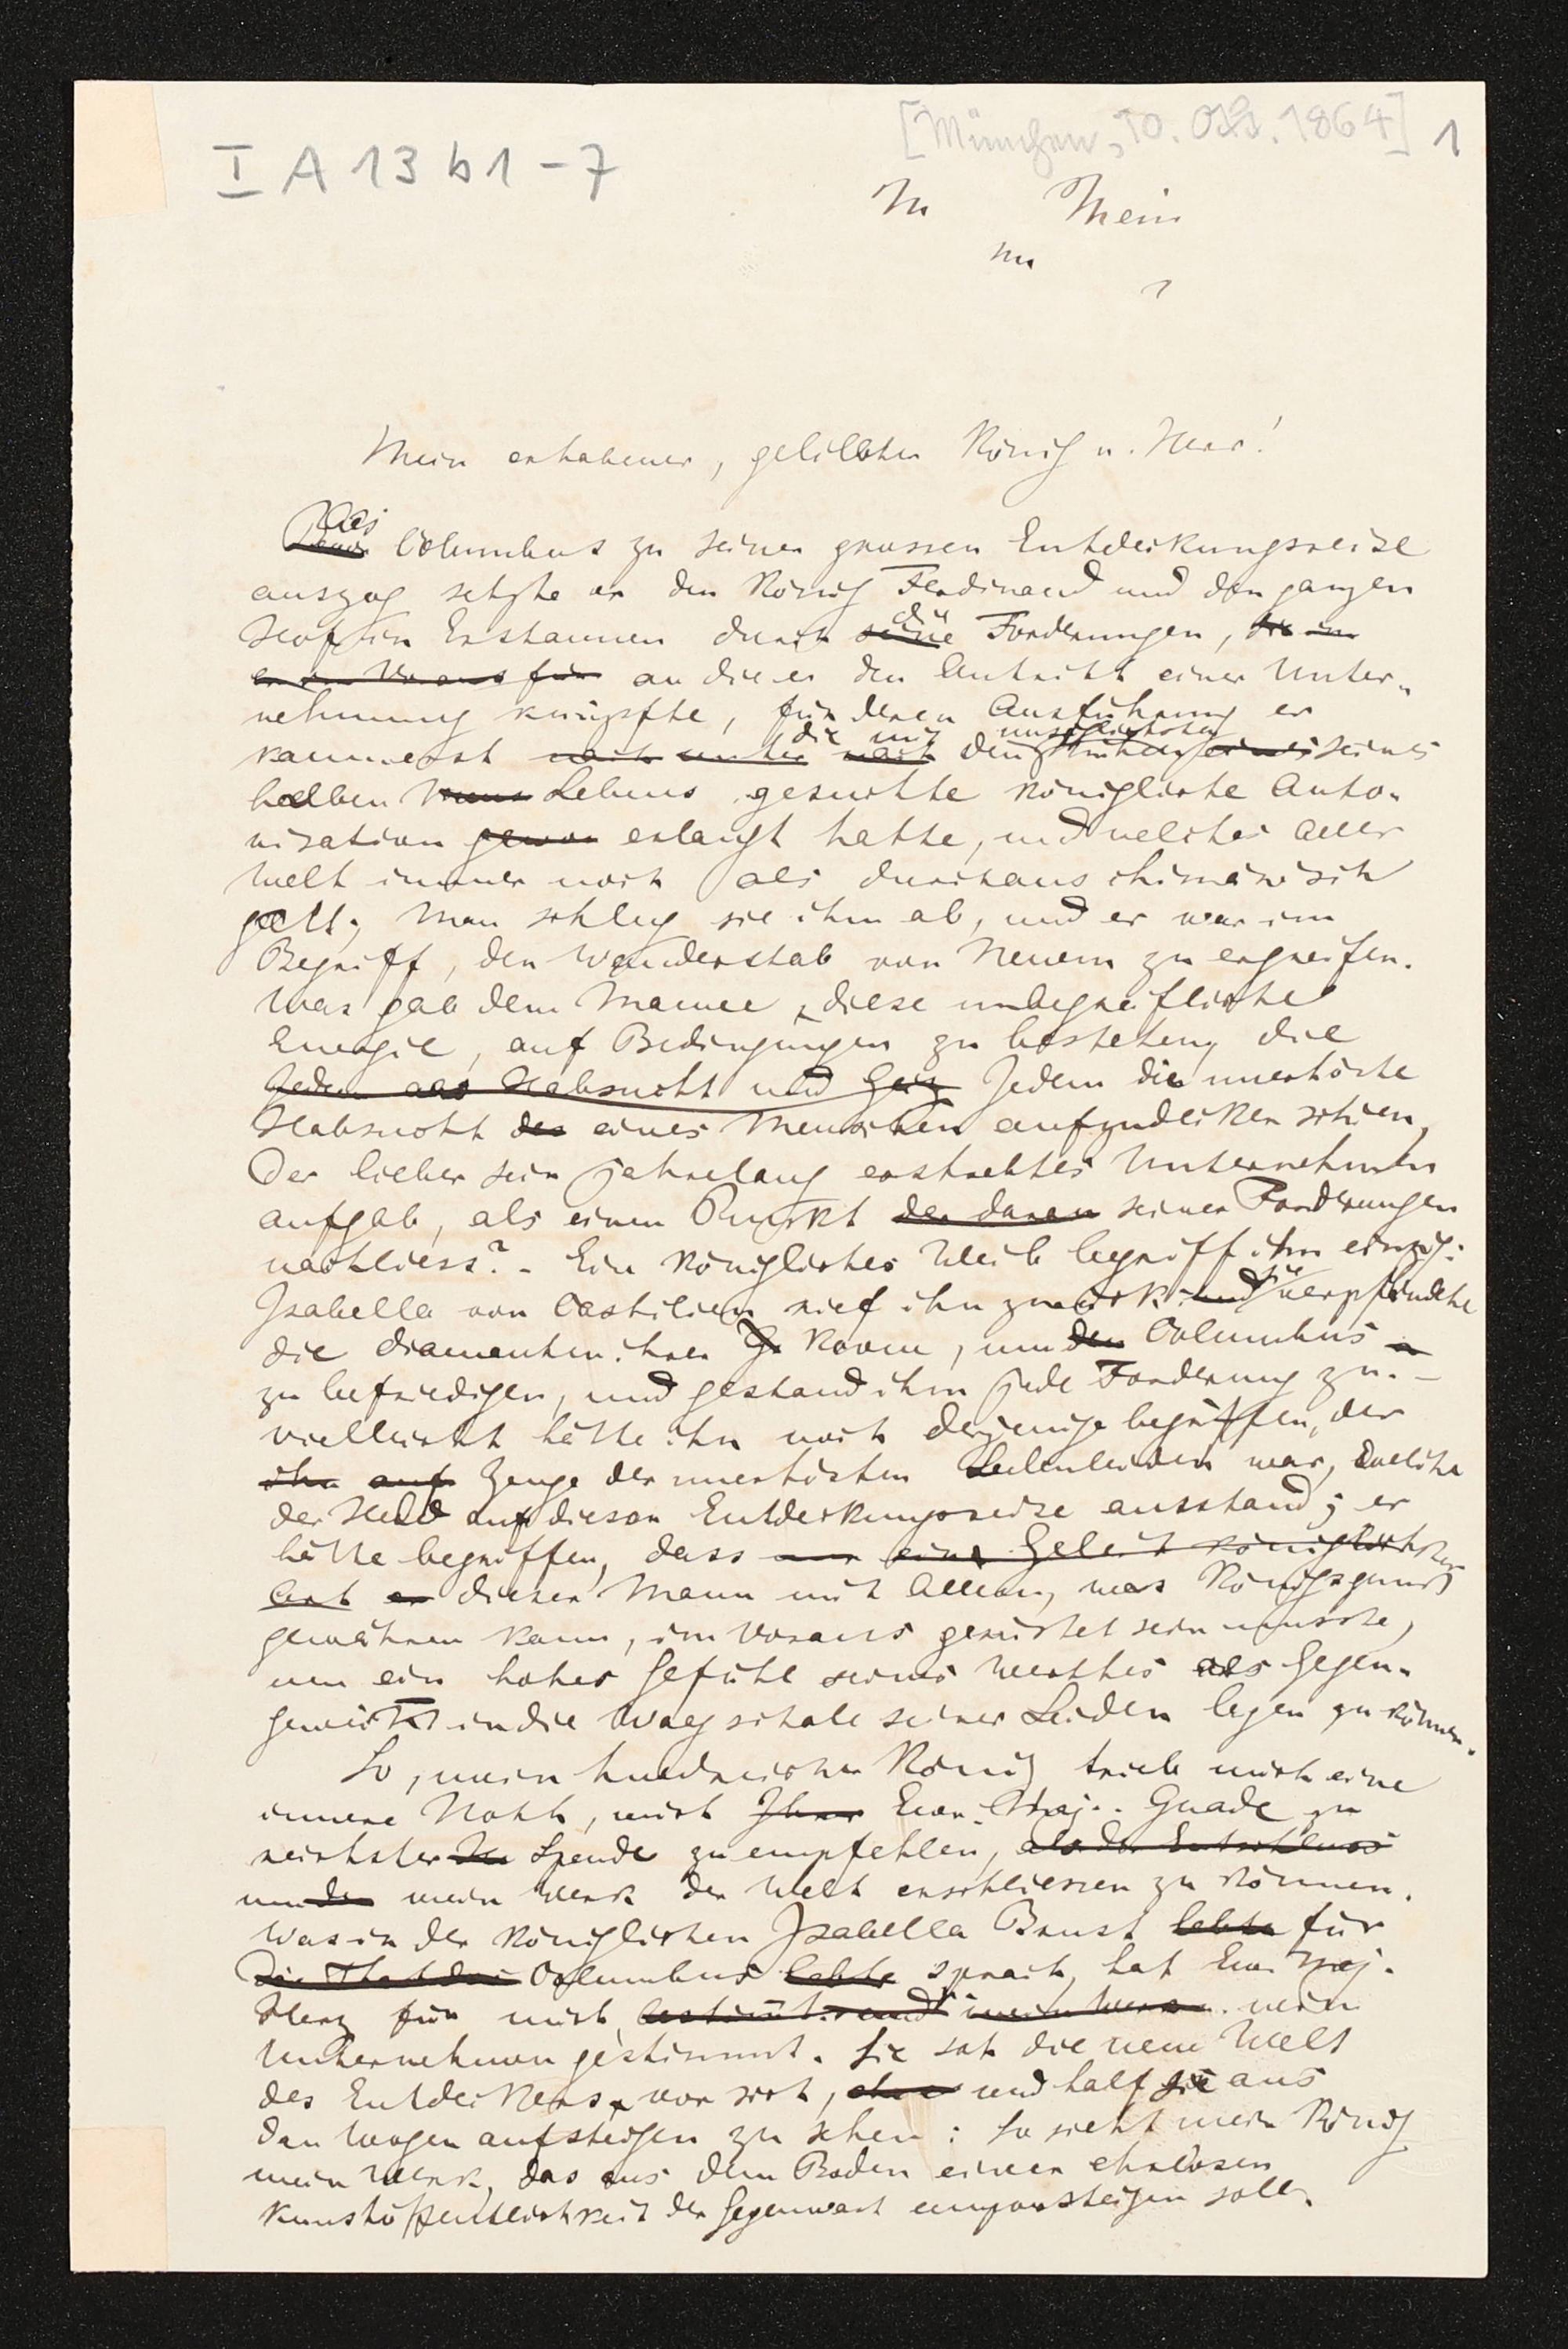 [München, 10. Okt. 1864] 1
I A 13 b1-7
M Mein
m
Mein erhabener, geliebter König u. Herr!
Als
Columbus zu seiner grossen Entdeckungsreise
auszog setzte er den König Ferdinand und den ganzen
die
Hof in Erstaunen durch seine Forderungen, die im
er im Voraus für an die er den Antritt einer Unter-
nehmung knüpfte, für deren Ausführung er
die mit unsäglichsten
kaum erst nach den Mühen eines seines
halben Lebens gesuchte königliche Auto-
risation gewon erlangt hatte, und welche aller
Welt immer noch als durchaus chimärisch
galt; Man schlug sie ihm ab, und er war im
Begriff, den Wanderstab von Neuem zu ergreifen.
Was gab dem Manne diese unbegreifliche
Energie, auf Bedingungen zu bestehen, die
Jedem als Habsucht und Geiz Jedem die unerhörte
Habsucht des eines Menschen aufzudecken schien,
Der lieber sein jahrelang erstrebtes Unternehmen
aufgab, als einen Punkt der daran seiner Forderungen
nachliess? - Ein königliches Weib begriff ihn einzig:
sie
Isabella von Castilien rief ihn zurück: und verpfändete
die Diamanten ihrer Krone, um den Columbus
zu befriedigen, und gestand ihm jede Forderung zu. -
Vielleicht hätte ihn noch derjenige begriffen, der
ihn auf Zeuge der unerhörten Seelenleiden war, welche
der Held auf dieser Entdeckungsreise ausstand; er
hätte begriffen, dass nur eine Geleit königlichster
Art er dieser Mann mit Allem, was Königsgunst
gewähren kann, im Voraus gerüstet sein musste,
um ein hohes Gefühl seines Werthes als Gegen-
gewicht in die Waagschale seiner Leiden legen zu können.
So, mein huldreicher König trieb mich eine
innere Noth, mich Ihrer Euer Maj. Gnade zu
reichster Spende zu empfehlen, als der Entschluss
um der mein Werk der Welt erschliessen zu können.
Was in der königlichen Isabella Brust lebte für
Die That des Columbus lebte sprach, hat Eur Maj.
Herz für mich bestimmt und mein Werk mein
Unternehmen gestimmt. Sie sah die neue Welt
des Entdeckers vor sich, und half sie aus
den Wogen aufsteigen zu sehen: So sieht mein König
mein Werk, das aus dem Boden einer ehrlosen
Kunstöffentlichkeit der Gegenwart emporsteigen soll.